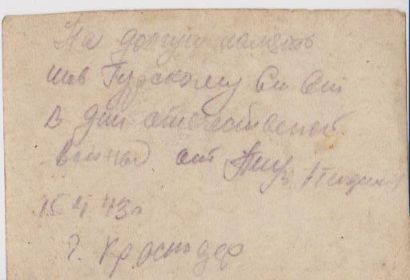 На долгую память
тов Гурскому
В дни отечественой
войны от
15 4 43г
г. Краснодар